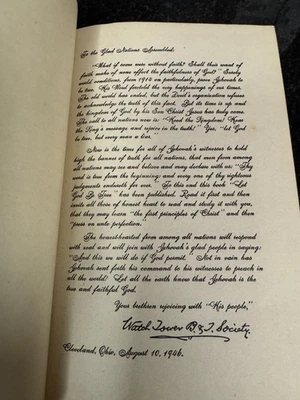 To the Glad Nations Assembled:
"What if some were without faith? Shall this want of
faith make of none effect the faithfulness of God?" Surely
world conditions, from 1914 on particularly, prove Jehovah to
be true. His Word foretold the very happenings of our times.
The old world has ended, but the Devil's organization refuses
to acknowledge the truth of this fact. But its time is up and
the kingdom of God by his Son Christ Jesus has truly come.
The call to all nations now is: "Read the Kingdom! Hear
the King's message and rejoice in the truth!" Yea, "let God
be true, but every man a liar."
Now is the time for all of Jehovah's witnesses to hold
high the banner of truth for all nations, that men from among
all nations may see and believe and may declare with us: "Thy
word is true from the beginning: and every one of thy righteous
judgments endureth for ever." To this end this book "Let
God Be True" has been published. Read it first and then
invite all those of honest heart to read and study it with you,
that they may learn "the first principles of Christ" and then
"press on unto perfection."
The honesthearted from among all nations will respond
with zeal and will join with Jehovah's glad people in saying:
"And this we will do if God permit." Not in vain has
Jehovah sent forth his command to his witnesses to preach in
all the world! Let all the earth know that Jehovah is the
true and faithful God.
Your brethren rejoicing with "His people,"
Watch Tower B. & T. Society
Cleveland, Ohio, August 10, 1946.